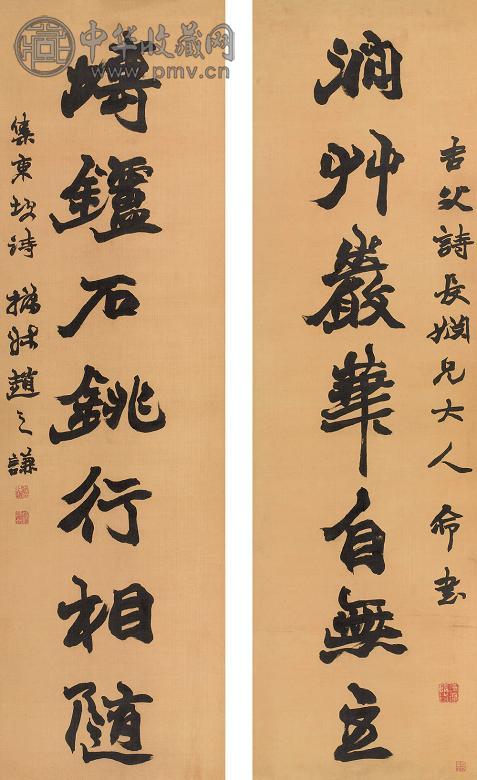 中华收藏网
www.pmv.cn
父詩長姻兄大人 命書
澗艸巖華自無主
塼鑪石銚行相隨
集東坡詩 撝叔趙之謙